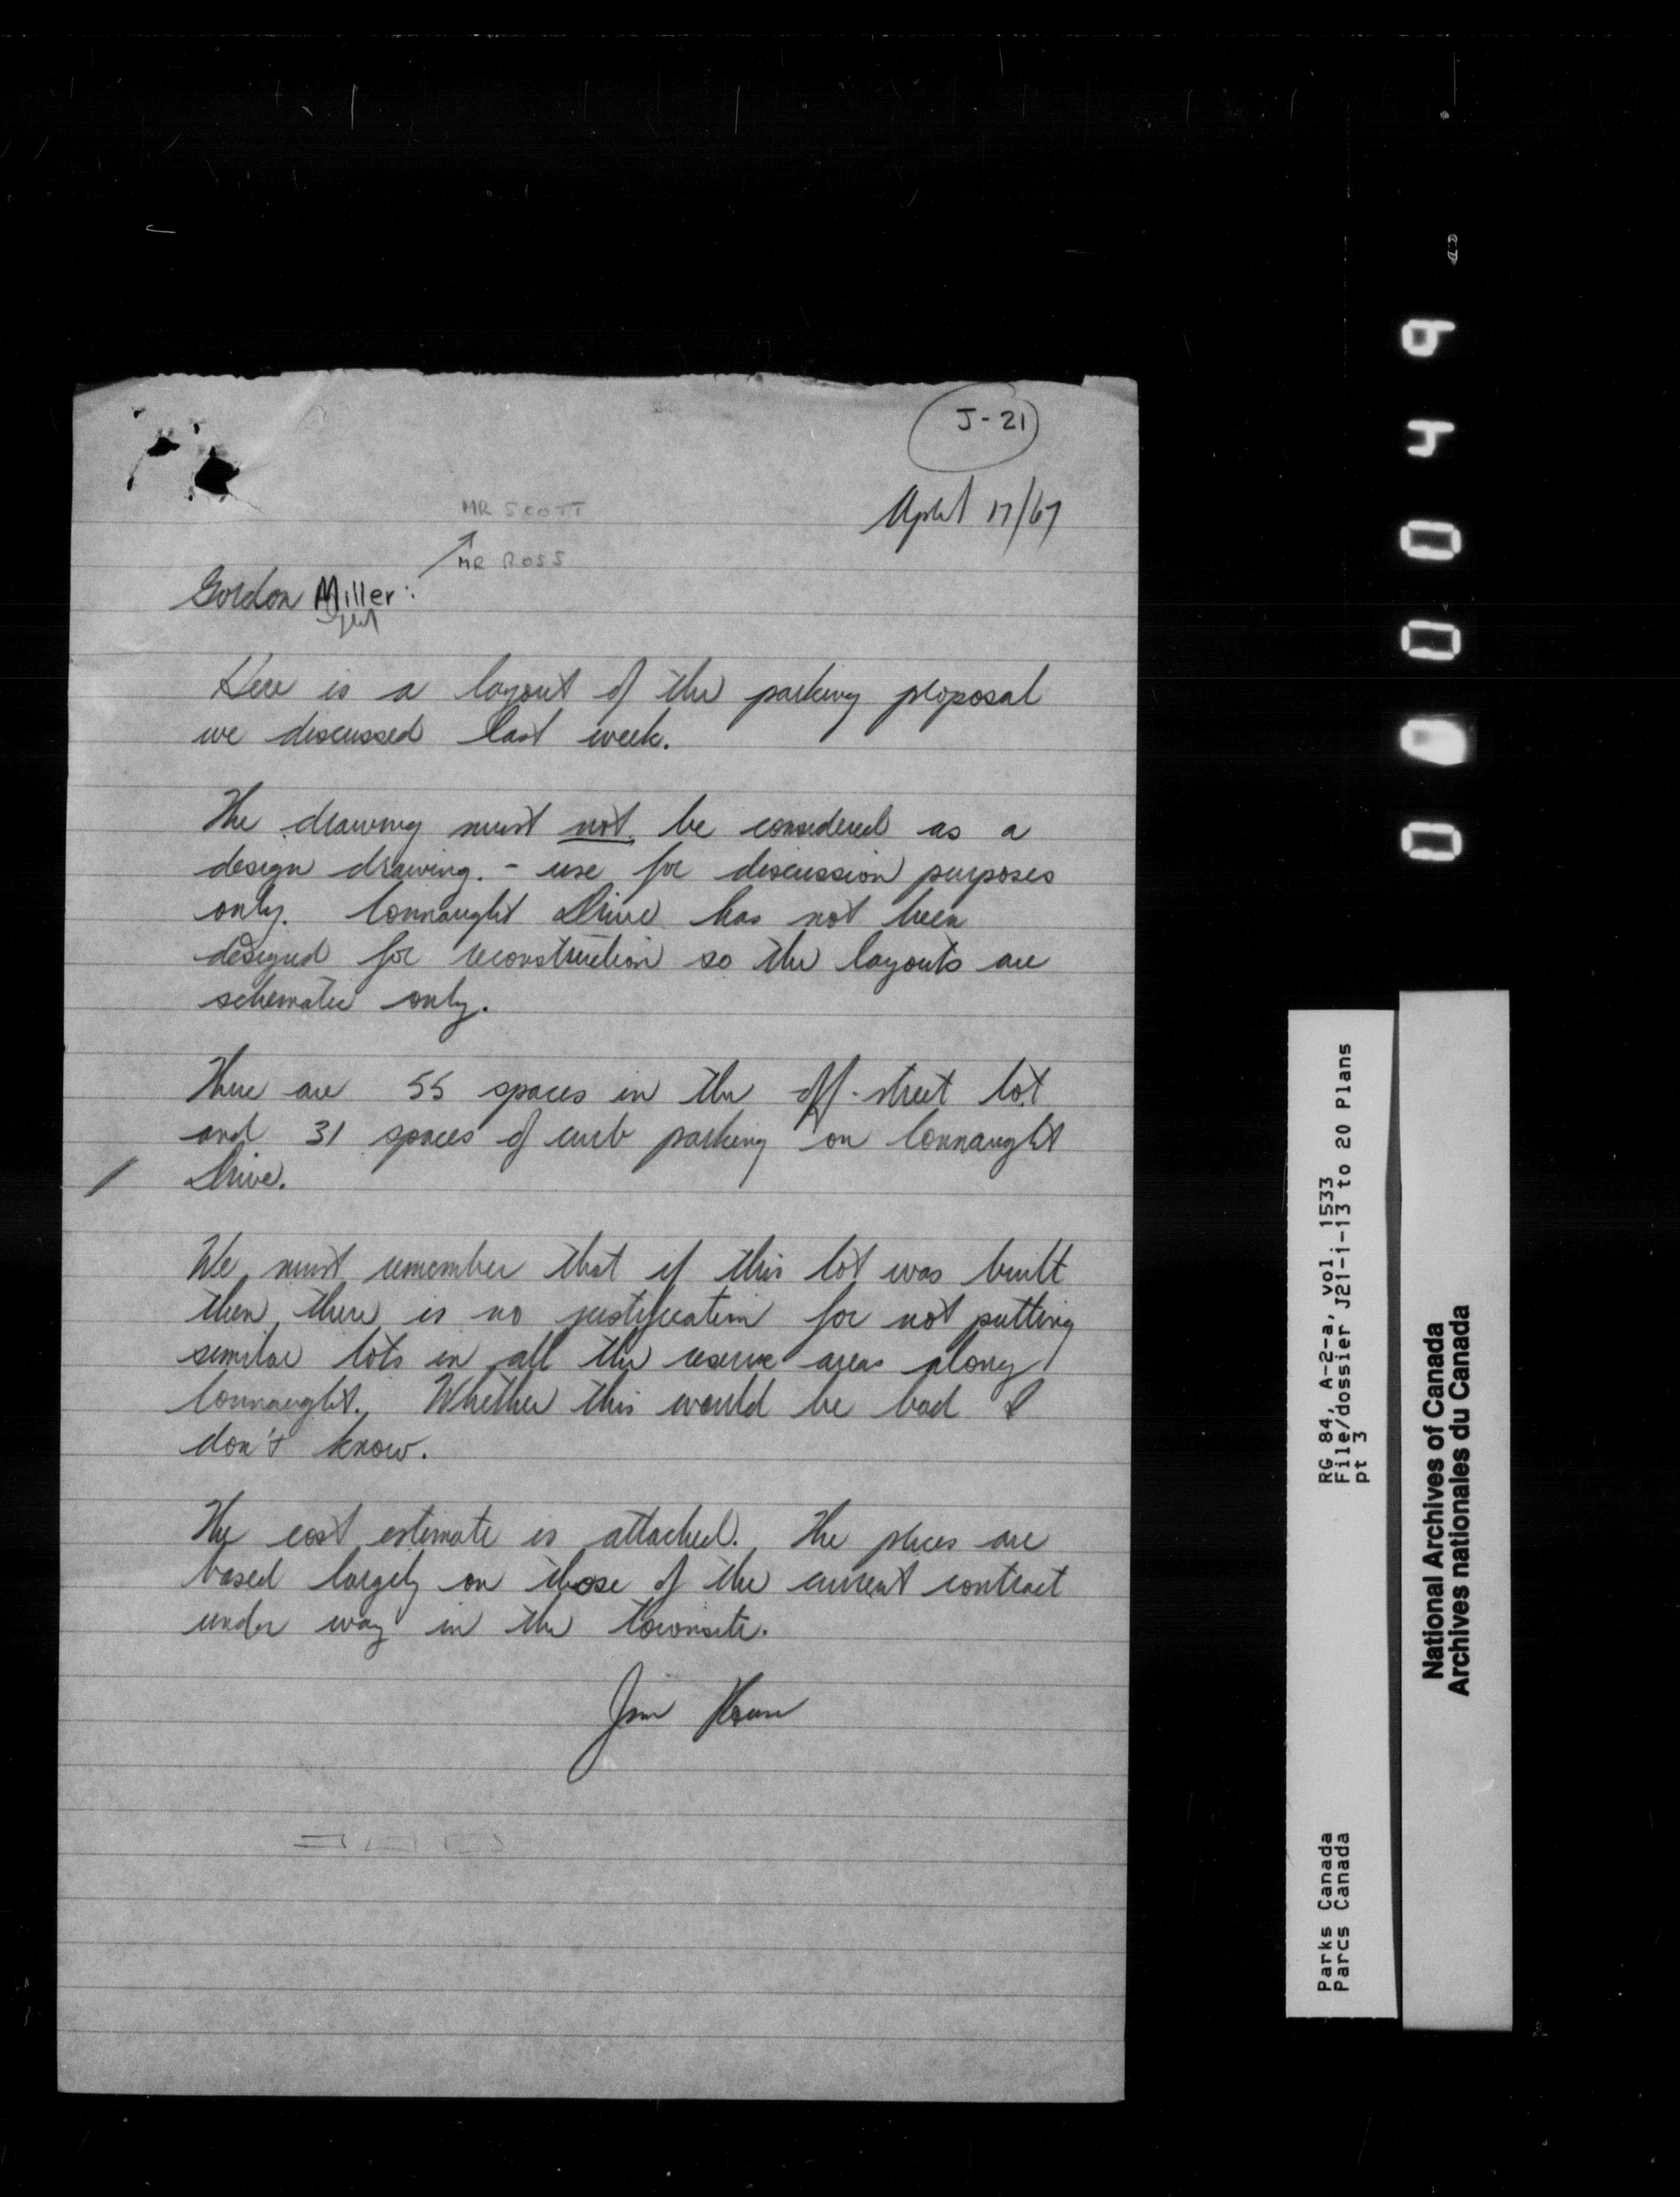 J-21
April 17/67
MR SCOTT
MR ROSS
Gordon Miller:
Here is a layout of the parking proposal
we discussed last week.
The drawing must not be considered as a
design drawing. - use for discussion purposes
only. Connaught Drive has not been
designed for reconstruction so the layouts are
schematic only.
There are 55 spaces in the off-street lot
and 31 spaces of curb parking on Connaught
Drive.
We must remember that if this lot was built
then there is no justification for not putting
similar lots in all the reserve areas along
Connaught. Whether this would be bad I
don't know.
The cost estimate is attached. The prices are
based largely on those of the current contract
under way in the townsite.
Jim
RG 84, A-2-a, vol. 1533
File/dossier J21-1-13 to 20 Plans
pt 3
Parks Canada
Parcs Canada
National Archives of Canada
Archives nationales du Canada